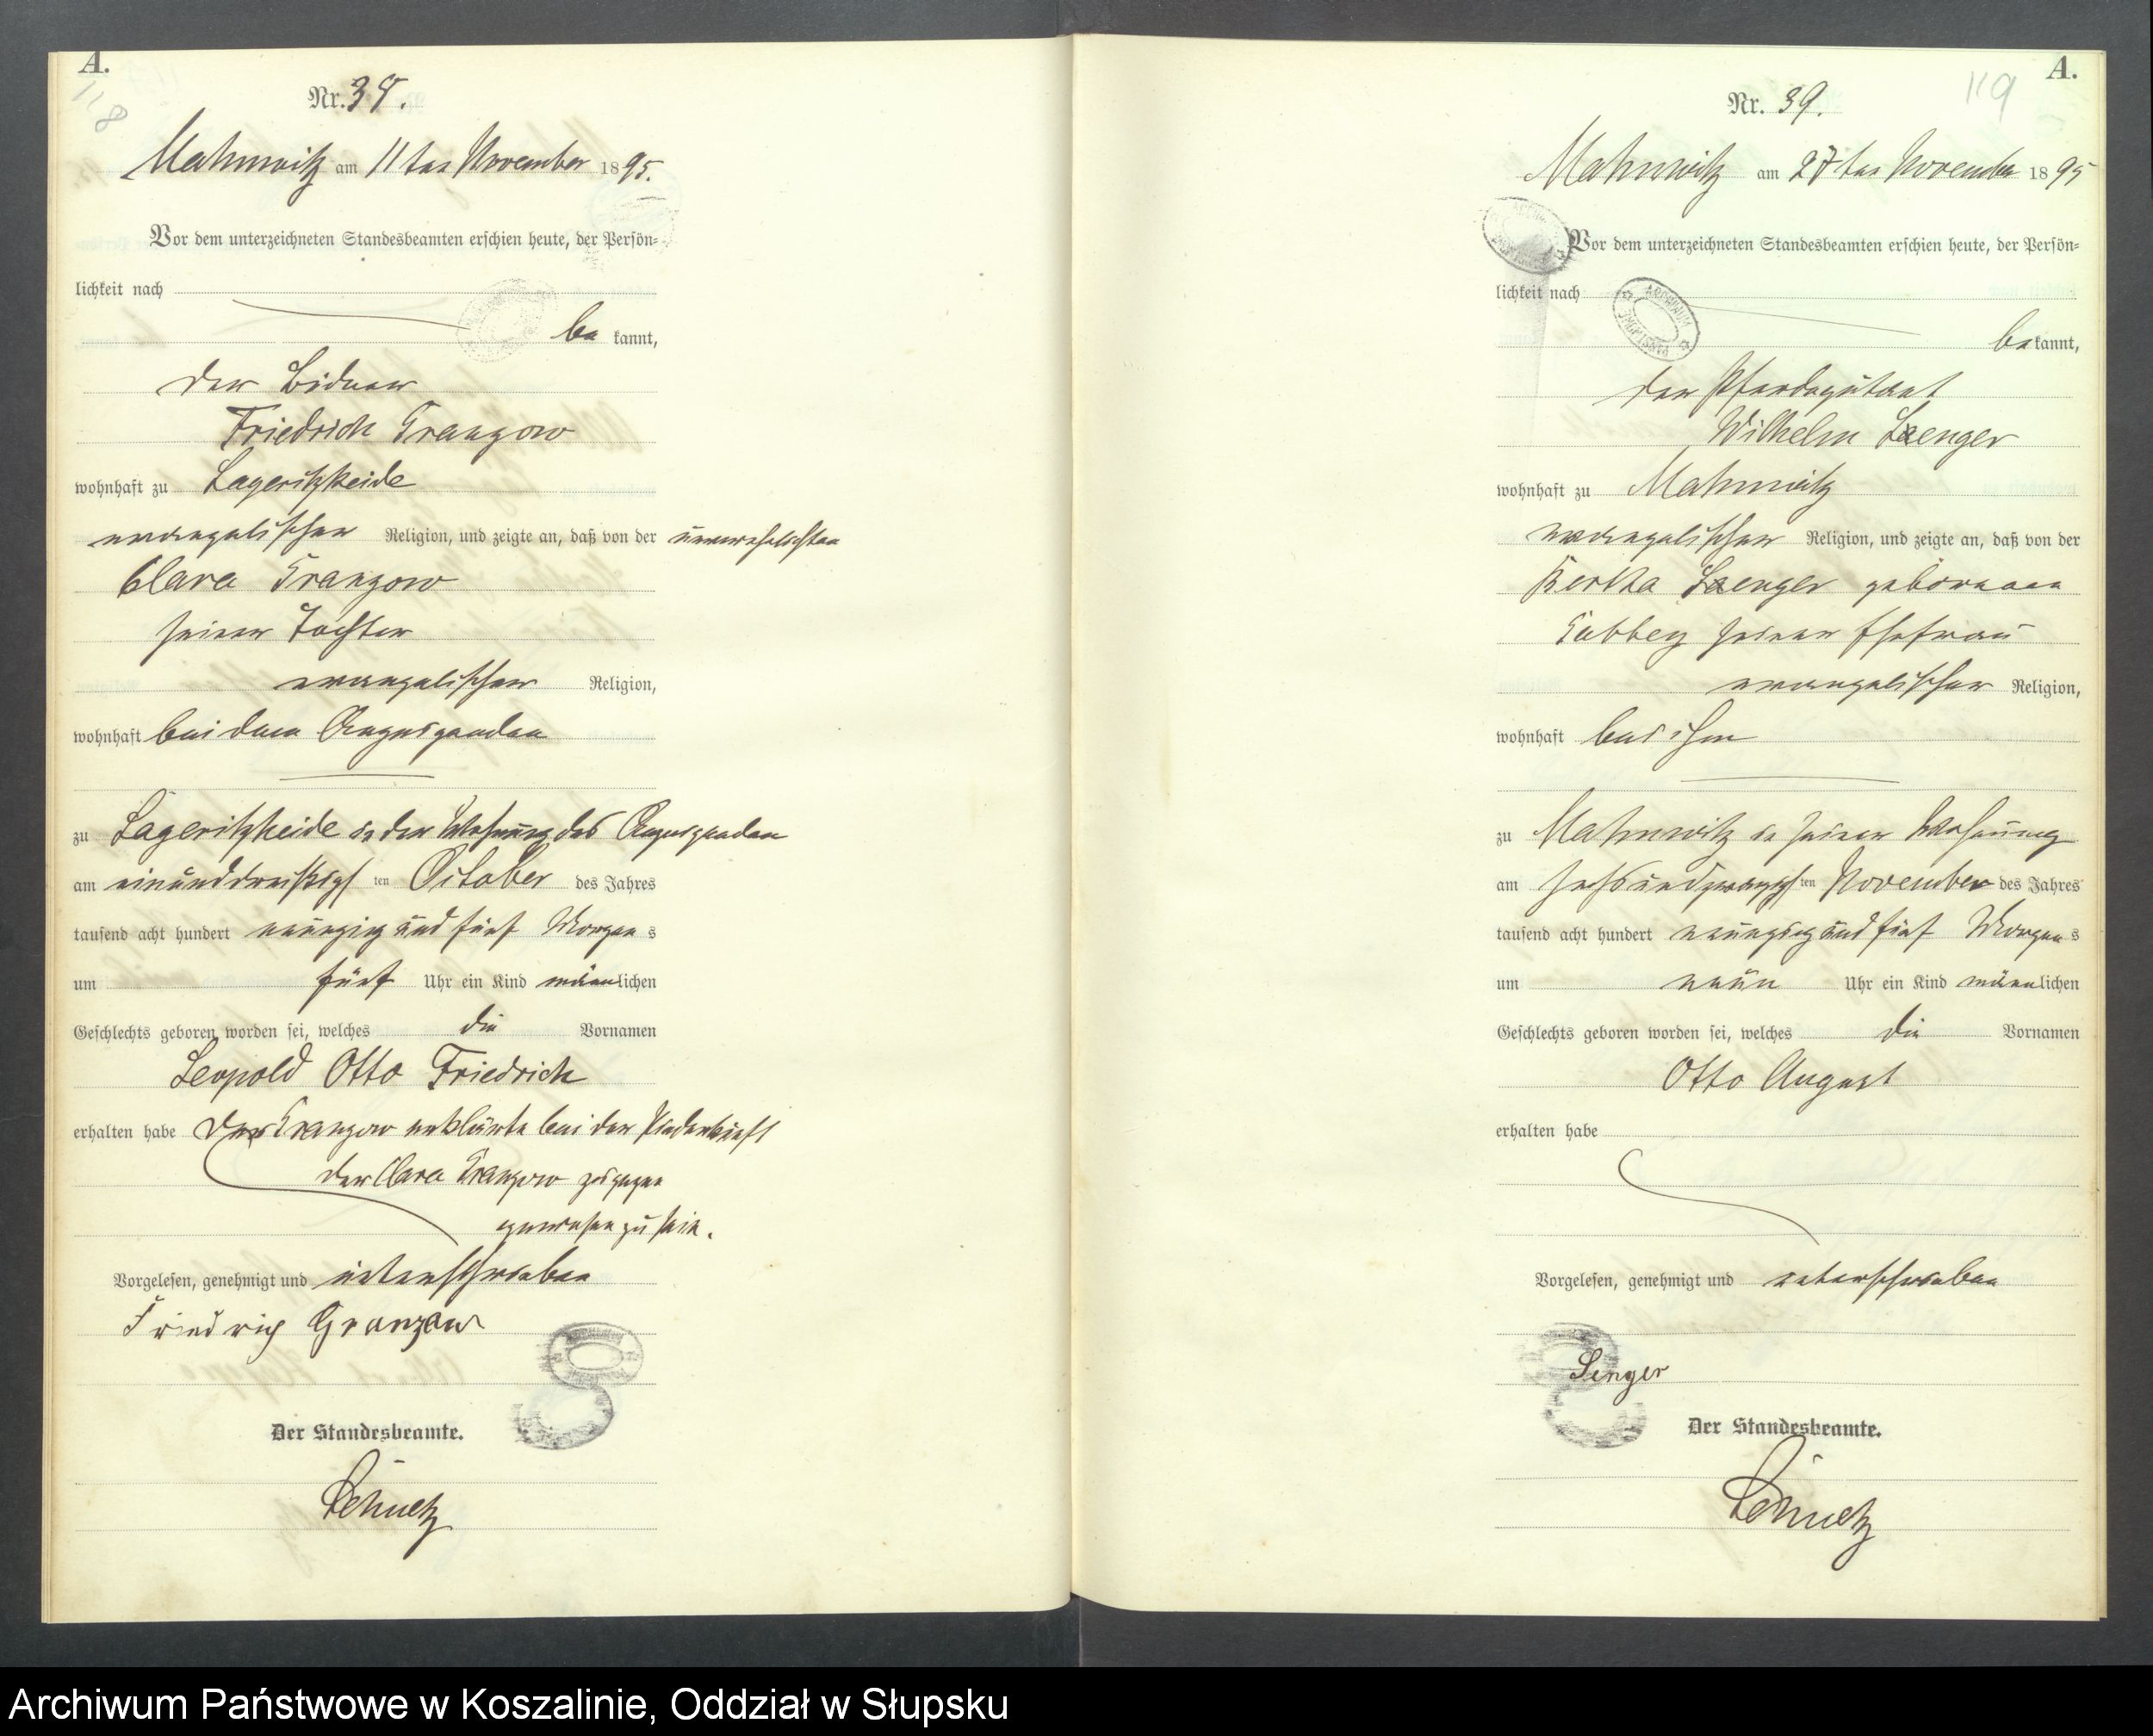 A.
118
Nr. 38.
Mahnwitz am 11ten November 1895.
Vor dem unterzeichneten Standesbeamten erschien heute, der Persön=
lichkeit nach
be kannt,
der Büdner
Friedrich Granzow
wohnhaft zu Lageritzheide
evangelischer Religion, und zeigte an, daß von der unverehelichten
Clara Granzow
seiner Tochter
evangelischer Religion,
wohnhaft bei dem Anzeigenden
zu Lageritzheide in der Wohnung des Anzeigenden
am einunddreißigsten October des Jahres
tausend acht hundert neunzig und fünf Morgens
um fünf Uhr ein Kind männlichen
Geschlechts geboren worden sei, welches die Vornamen
Leopold Otto Friedrich
erhalten habe Der Granzow erklärte bei der Niederkunft
der Clara Granzow zugegen
gewesen zu sein.
Vorgelesen, genehmigt und unterschrieben
Friedrich Granzow
Der Standesbeamte.
A.
119
Nr. 39.
Mahnwitz am 27ten November 1895
Vor dem unterzeichneten Standesbeamten erschien heute, der Persön=
lichkeit nach
bekannt,
der
Wilhelm Saenger
wohnhaft zu Mahnwitz
evangelischer Religion, und zeigte an, daß von der
Bertha Saenger geborenen
seiner Ehefrau
evangelischer Religion,
wohnhaft bei ihm
zu Mahnwitz in seiner Wohnung
am sechsundzwanzigsten November des Jahres
tausend acht hundert neunzig und fünf Morgens
um neun Uhr ein Kind männlichen
Geschlechts geboren worden sei, welches die Vornamen
Otto August
erhalten habe
Vorgelesen, genehmigt und unterschrieben
Senger
Der Standesbeamte.
Archiwum Państwowe w Koszalinie, Oddział w Słupsku